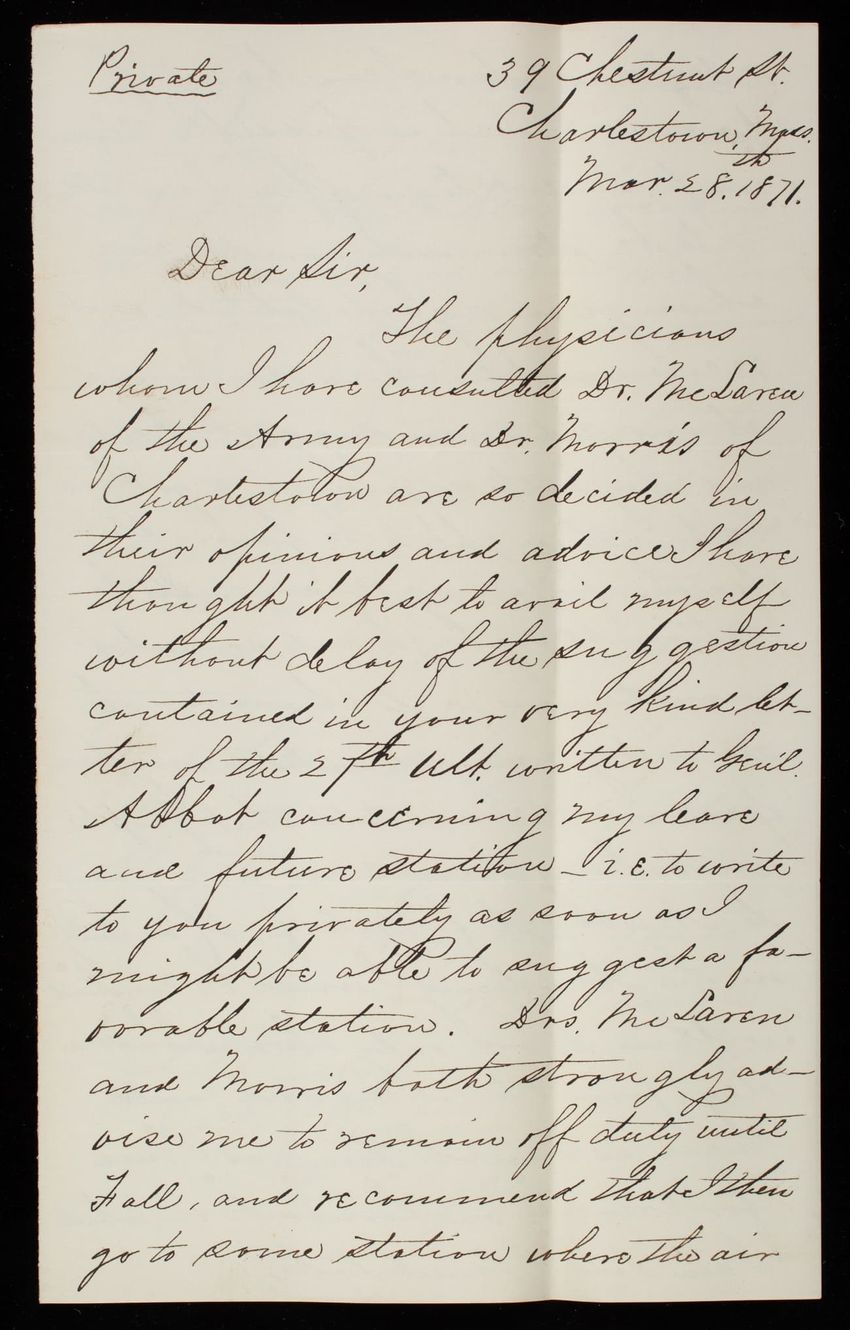 Private
39 Chestnut St.
Charlestown, Mass.
Mar. 28th. 1871.
Dear Sir,
The physicians
whom I have consulted Dr. McLaren
of the Army and Dr. Morris of
Charlestown are so decided in
their opinions and advice I have
thought it best to avail myself
without delay of the suggestion
contained in your very kind let-
ter of the 27th Ult. written to Genl.
Abbot concerning my leave
and future station – i.e. to write
to you privately as soon as I
might be able to suggest a fa-
vorable station. Drs. McLaren
and Morris both strongly ad-
vise me to remain off duty until
Fall, and recommend that I then
go to some station where the air